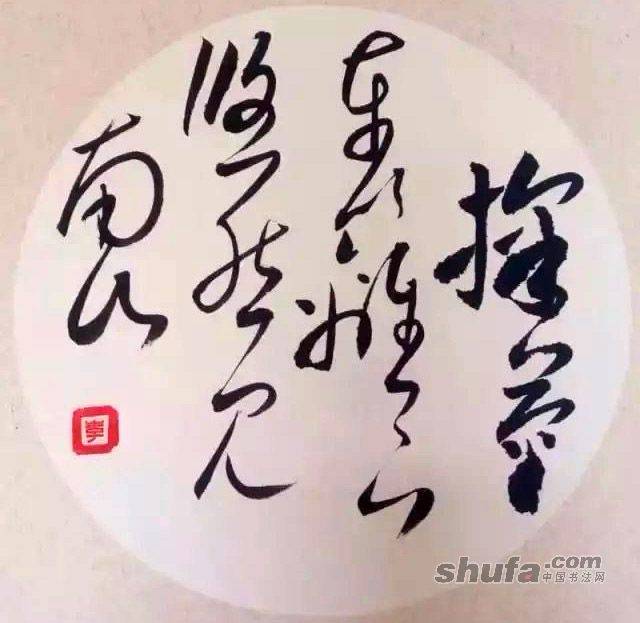 採菊
東籬下
悠然見
南山
李
shufa.com
中国书法网